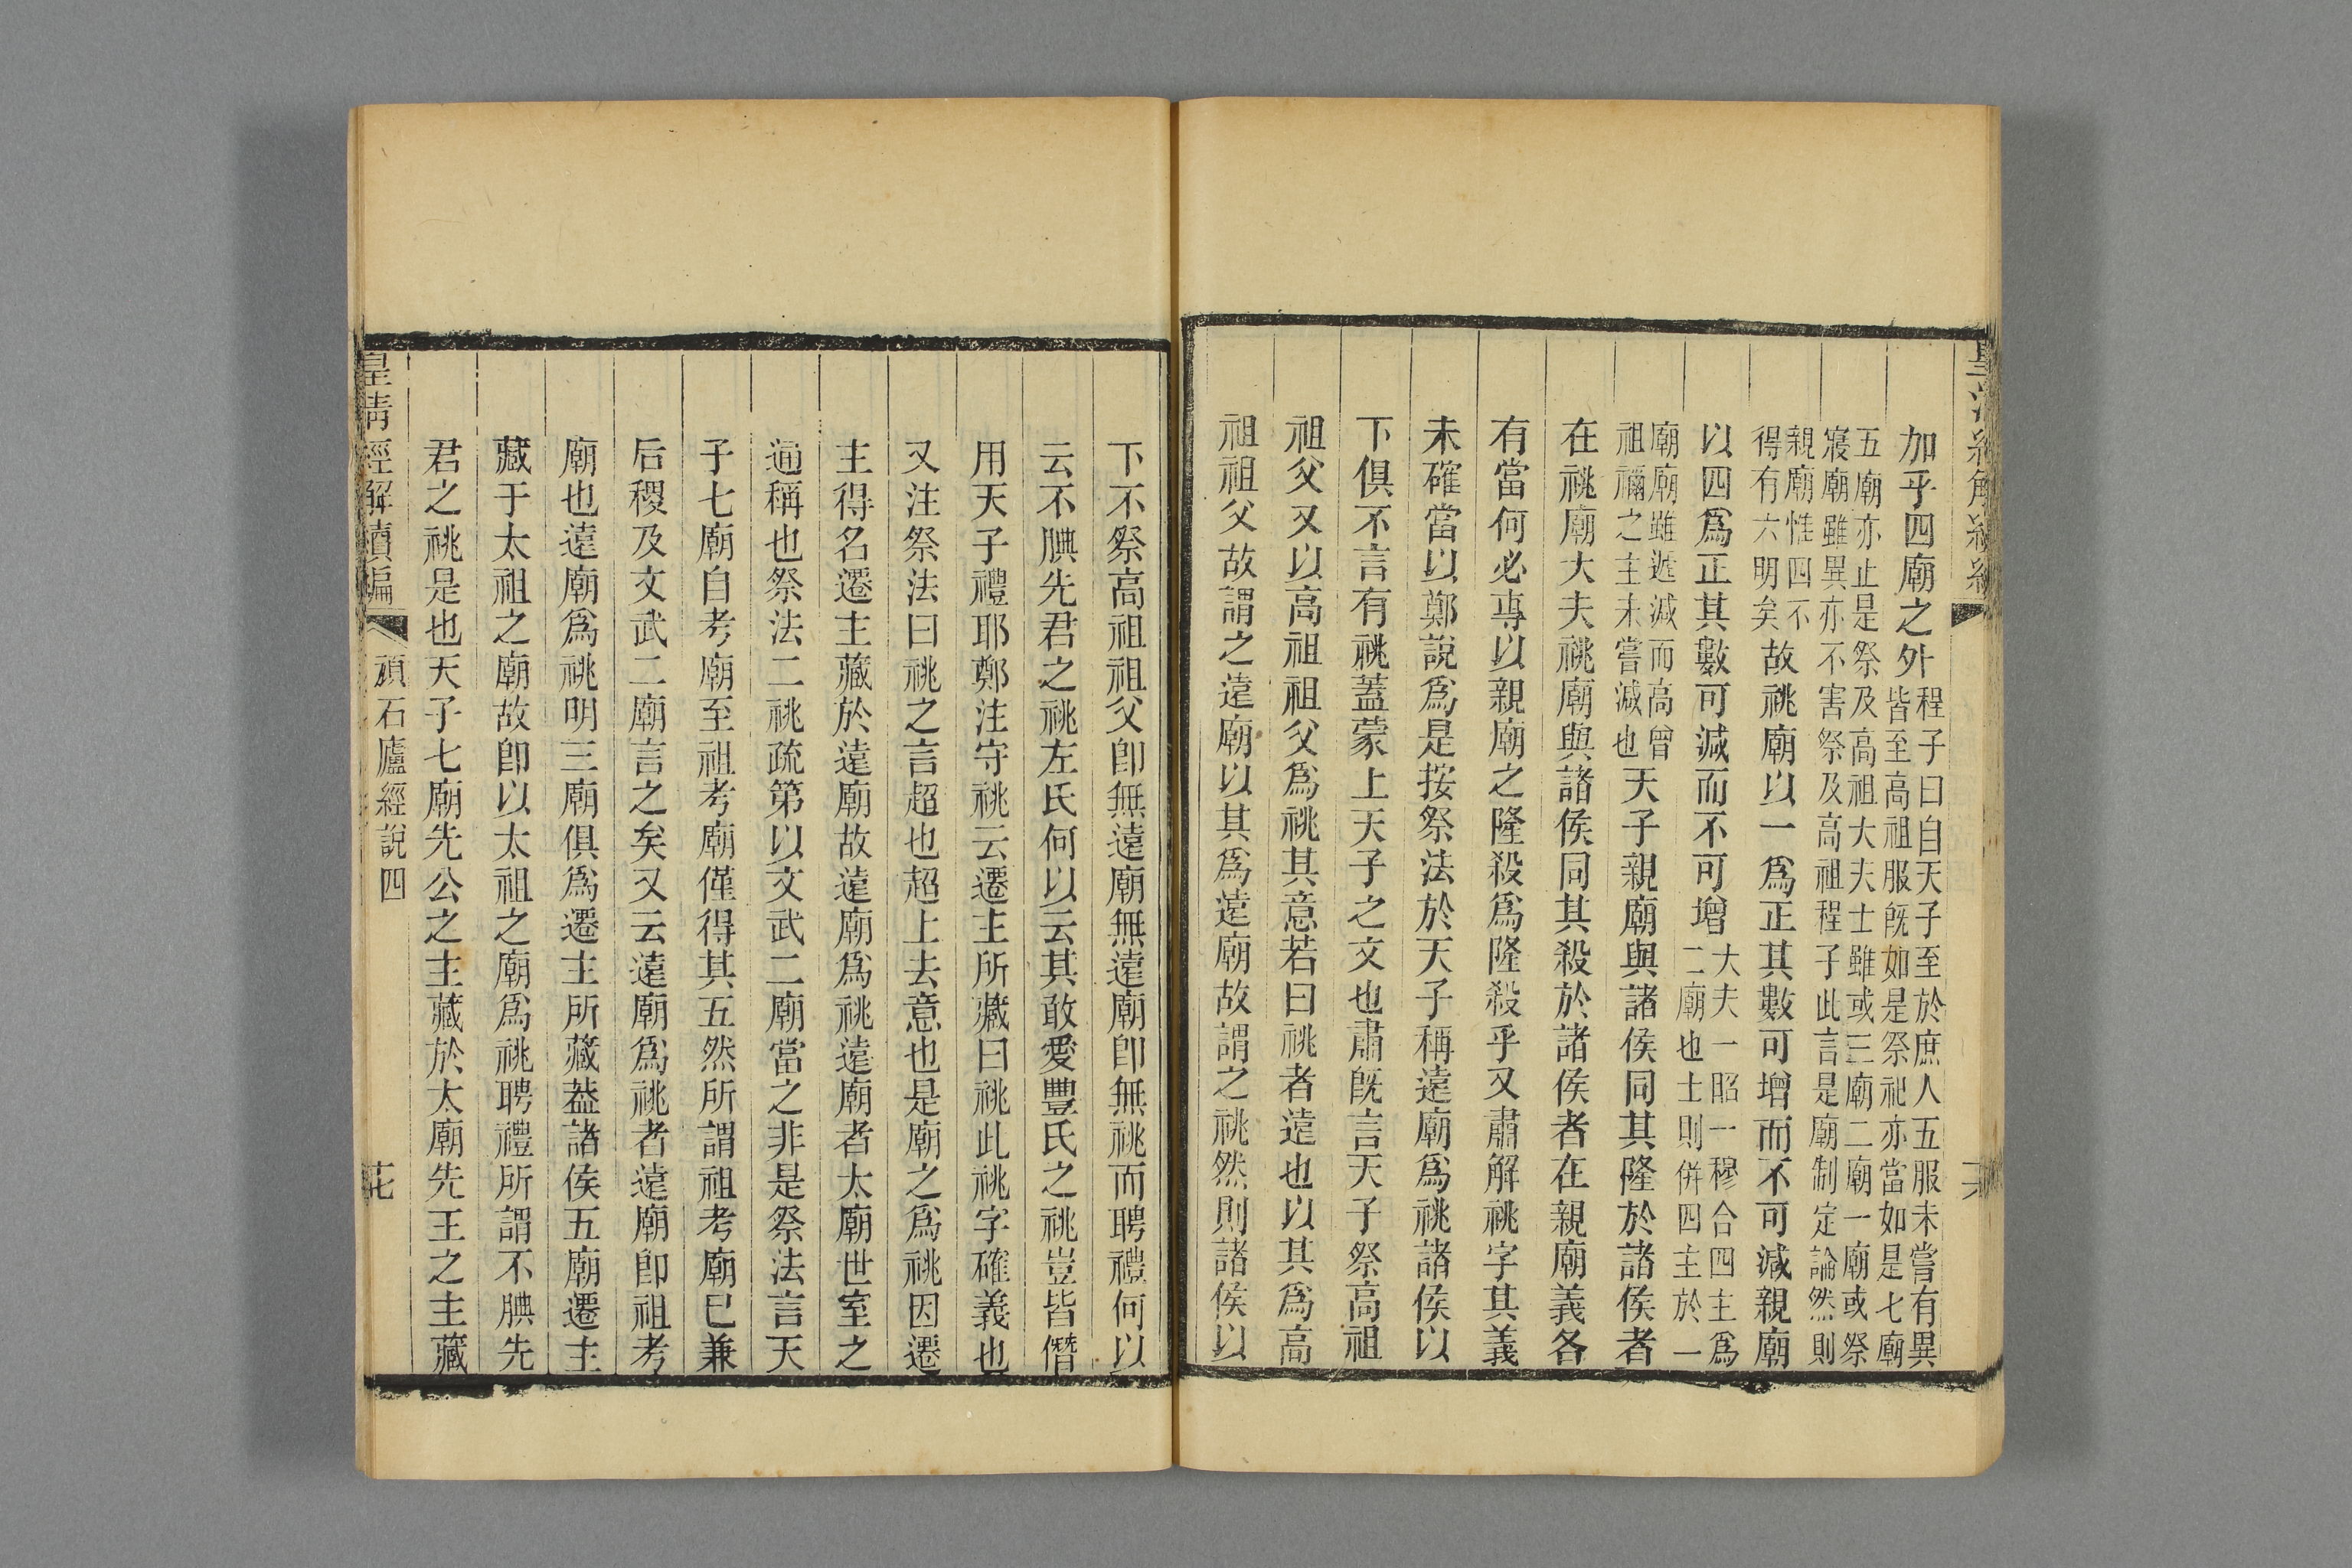 加乎四廟之外程子曰自天子至於庶人五服未嘗有異
皆至高祖服旣如是祭祀亦當如是七廟
五廟亦止是祭及高祖大夫士雖或三廟二廟一廟或祭
寢廟雖異亦不害祭及高祖程子此言是廟制定論然則
親廟惟四不
得有六明矣故祧廟以一爲正其數可增而不可減親廟
以四爲正其數可減而不可增大夫一昭一穆合四主爲
二廟也士則併四主於一
廟廟雖遞減而高曾
祖禰之主未嘗減也天子親廟與諸侯同其隆於諸侯者
在祧廟大夫祧廟與諸侯同其殺於諸侯者在親廟義各
有當何必專以親廟之隆殺爲隆殺乎又肅解祧字其義
未確當以鄭說爲是按祭法於天子稱遠廟爲祧諸侯以
下俱不言有祧蓋蒙上天子之文也肅旣言天子祭高祖
祖父又以高祖祖父爲祧其意若曰祧者遠也以其爲高
祖祖父故謂之遠廟以其爲遠廟故謂之祧然則諸侯以
下不祭高祖祖父卽無遠廟無遠廟卽無祧而聘禮何以
云不腆先君之祧左氏何以云其敢愛豐氏之祧豈皆僭
用天子禮耶鄭注守祧云遷主所藏曰祧此祧字確義也
又注祭法曰祧之言超也超上去意也是廟之爲祧因遷
主得名遷主藏於遠廟故遠廟爲祧遠廟者太廟世室之
通稱也祭法二祧疏第以文武二廟當之非是祭法言天
子七廟自考廟至祖考廟僅得其五然所謂祖考廟已兼
后稷及文武二廟言之矣又云遠廟爲祧者遠廟卽祖考
廟也遠廟爲祧明三廟俱爲遷主所藏葢諸侯五廟遷主
藏于太祖之廟故卽以太祖之廟爲祧聘禮所謂不腆先
君之祧是也天子七廟先公之主藏於太廟先王之主藏
皇清經解續編
頑石廬經說四